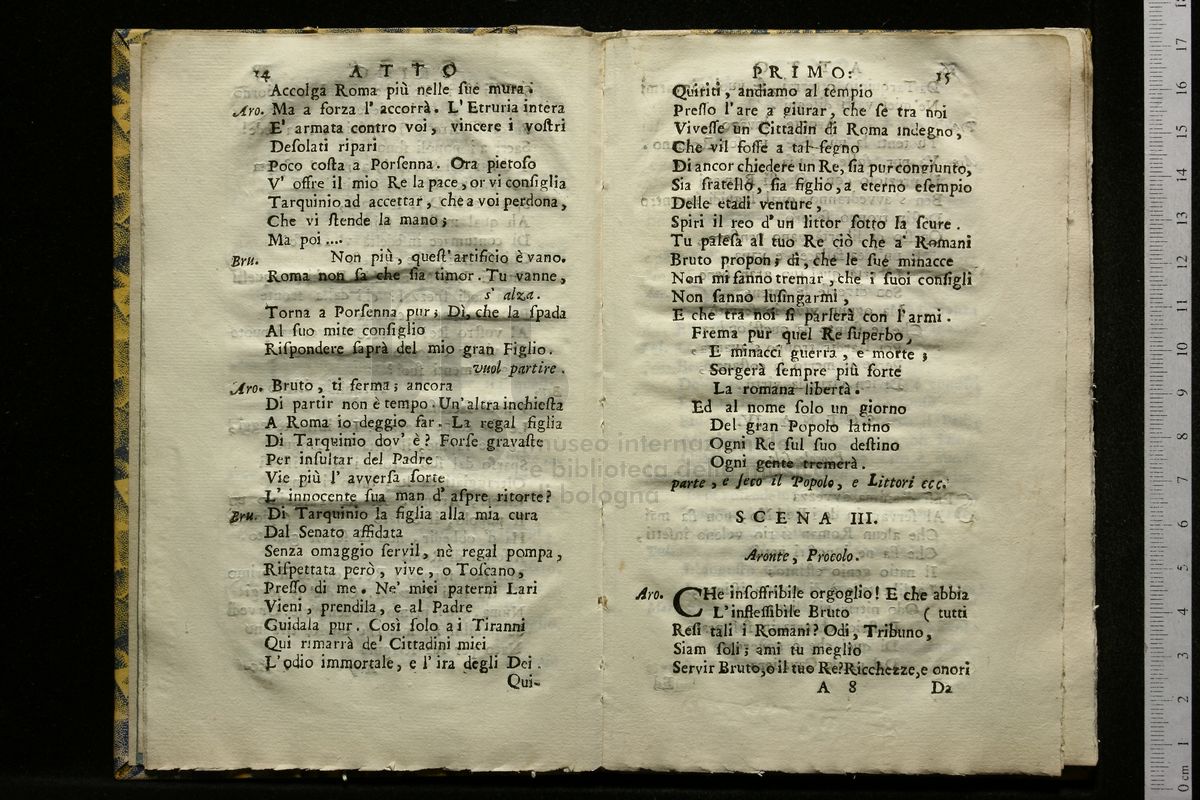 14 ATTO
Accolga Roma più nelle ſue mura.
Aro. Ma a forza l' accorrà. L' Etruria intera
E' armata contro voi, vincere i voſtri
Deſolati ripari
Poco coſta a Porſenna. Ora pietoſo
V' offre il mio Re la pace, or vi conſiglia
Tarquinio ad accettar, che a voi perdona,
Che vi ſtende la mano;
Ma poi ....
Bru. Non più, queſt' artificio è vano.
Roma non ſa che ſia timor. Tu vanne,
s' alza.
Torna a Porſenna pur; Dì, che la ſpada
Al ſuo mite conſiglio
Riſpondere ſaprà del mio gran Figlio.
vuol partire.
Aro. Bruto, ti ferma; ancora
Di partir non è tempo. Un' altra inchieſta
A Roma io deggio far. La regal figlia
Di Tarquinio dov' è? Forſe gravaſte
Per inſultar del Padre
Vie più l' avverſa ſorte
L' innocente ſua man d' aſpre ritorte?
Bru. Di Tarquinio la figlia alla mia cura
Dal Senato affidata
Senza omaggio ſervil, nè regal pompa,
Riſpettata però, vive, o Toſcano,
Preſſo di me. Ne' miei paterni Lari
Vieni, prendila, e al Padre
Guidala pur. Così ſolo ai Tiranni
Qui rimarrà de' Cittadini miei
L' odio immortale, e l' ira degli Dei.
Qui-
PRIMO: 15
Quiriti, andiamo al tempio
Preſſo l' are a giurar, che ſe tra noi
Viveſſe un Cittadin di Roma indegno,
Che vil foſſe a tal ſegno
Di ancor chiedere un Re, ſia pur congiunto,
Sia fratello, ſia figlio, a eterno eſempio
Delle etadi venture,
Spiri il reo d' un littor ſotto la ſcure.
Tu paleſa al tuo Re ciò che a' Romani
Bruto propon; dì, che le ſue minacce
Non mi fanno tremar, che i ſuoi conſigli
Non ſanno luſingarmi,
E che tra noi ſi parlerà con l' armi.
Frema pur quel Re ſuperbo,
E minacci guerra, e morte;
Sorgerà ſempre più forte
La romana libertà.
Ed al nome ſolo un giorno
Del gran Popolo latino
Ogni Re ſul ſuo deſtino
Ogni gente tremerà.
parte, e ſeco il Popolo, e Littori ecc.
SCENA III.
Aronte, Procolo.
Aro. CHe inſoffribile orgoglio! E che abbia
L' infleſſibile Bruto ( tutti
Reſi tali i Romani? Odi, Tribuno,
Siam ſoli; ami tu meglio
Servir Bruto, o il tuo Re? Ricchezze, e onori
A 8 Da
museo internazionale
e biblioteca della
di bologna